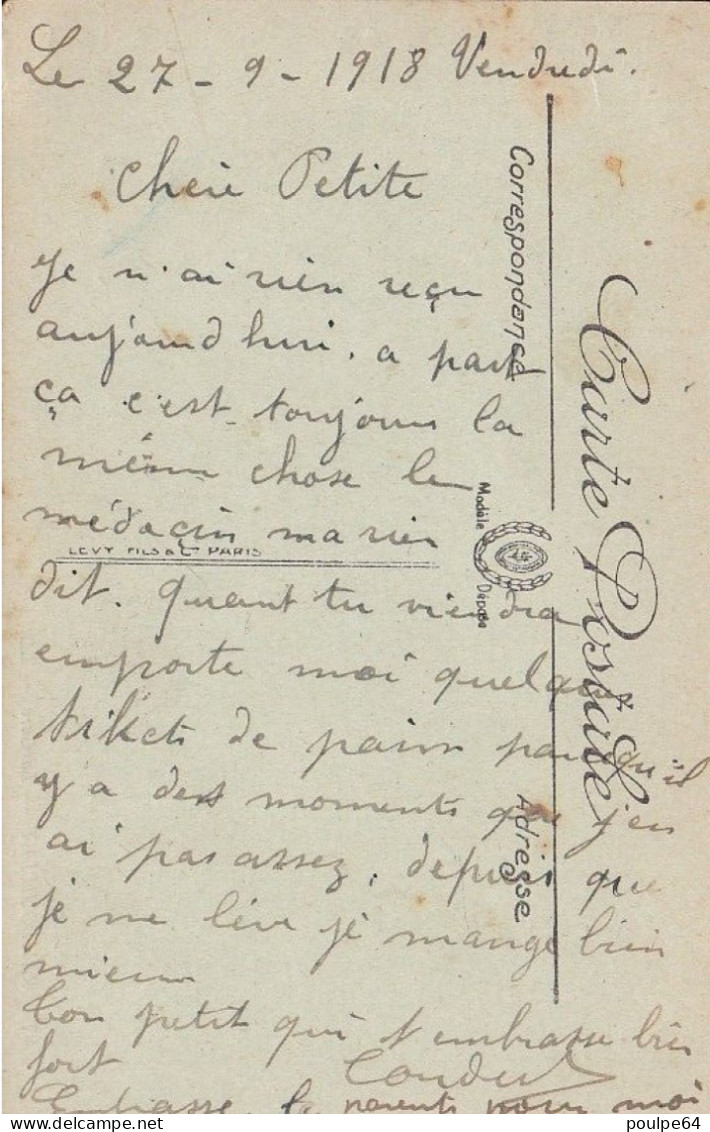 Le 27 - 9 - 1918 Vendredi.
Cheie Petite
Je n'ai rien reçu
aujourd'hui. a part
ça c'est toujours la
même chose le
médacin ma rien
dit. quant tu viendra
emporte moi quelque
tikets de pain parqu'il
y a des moments que j'en
ai pas assez, depuis que
je me lève je mange bien
mieux
Ton petit qui t'embrasse bien
fort
Embrasse les parents pour moi
Correspondance
Carte Postale
Adresse
Modèle Déposé
LEVY FILS & Cie PARIS
poulpe64